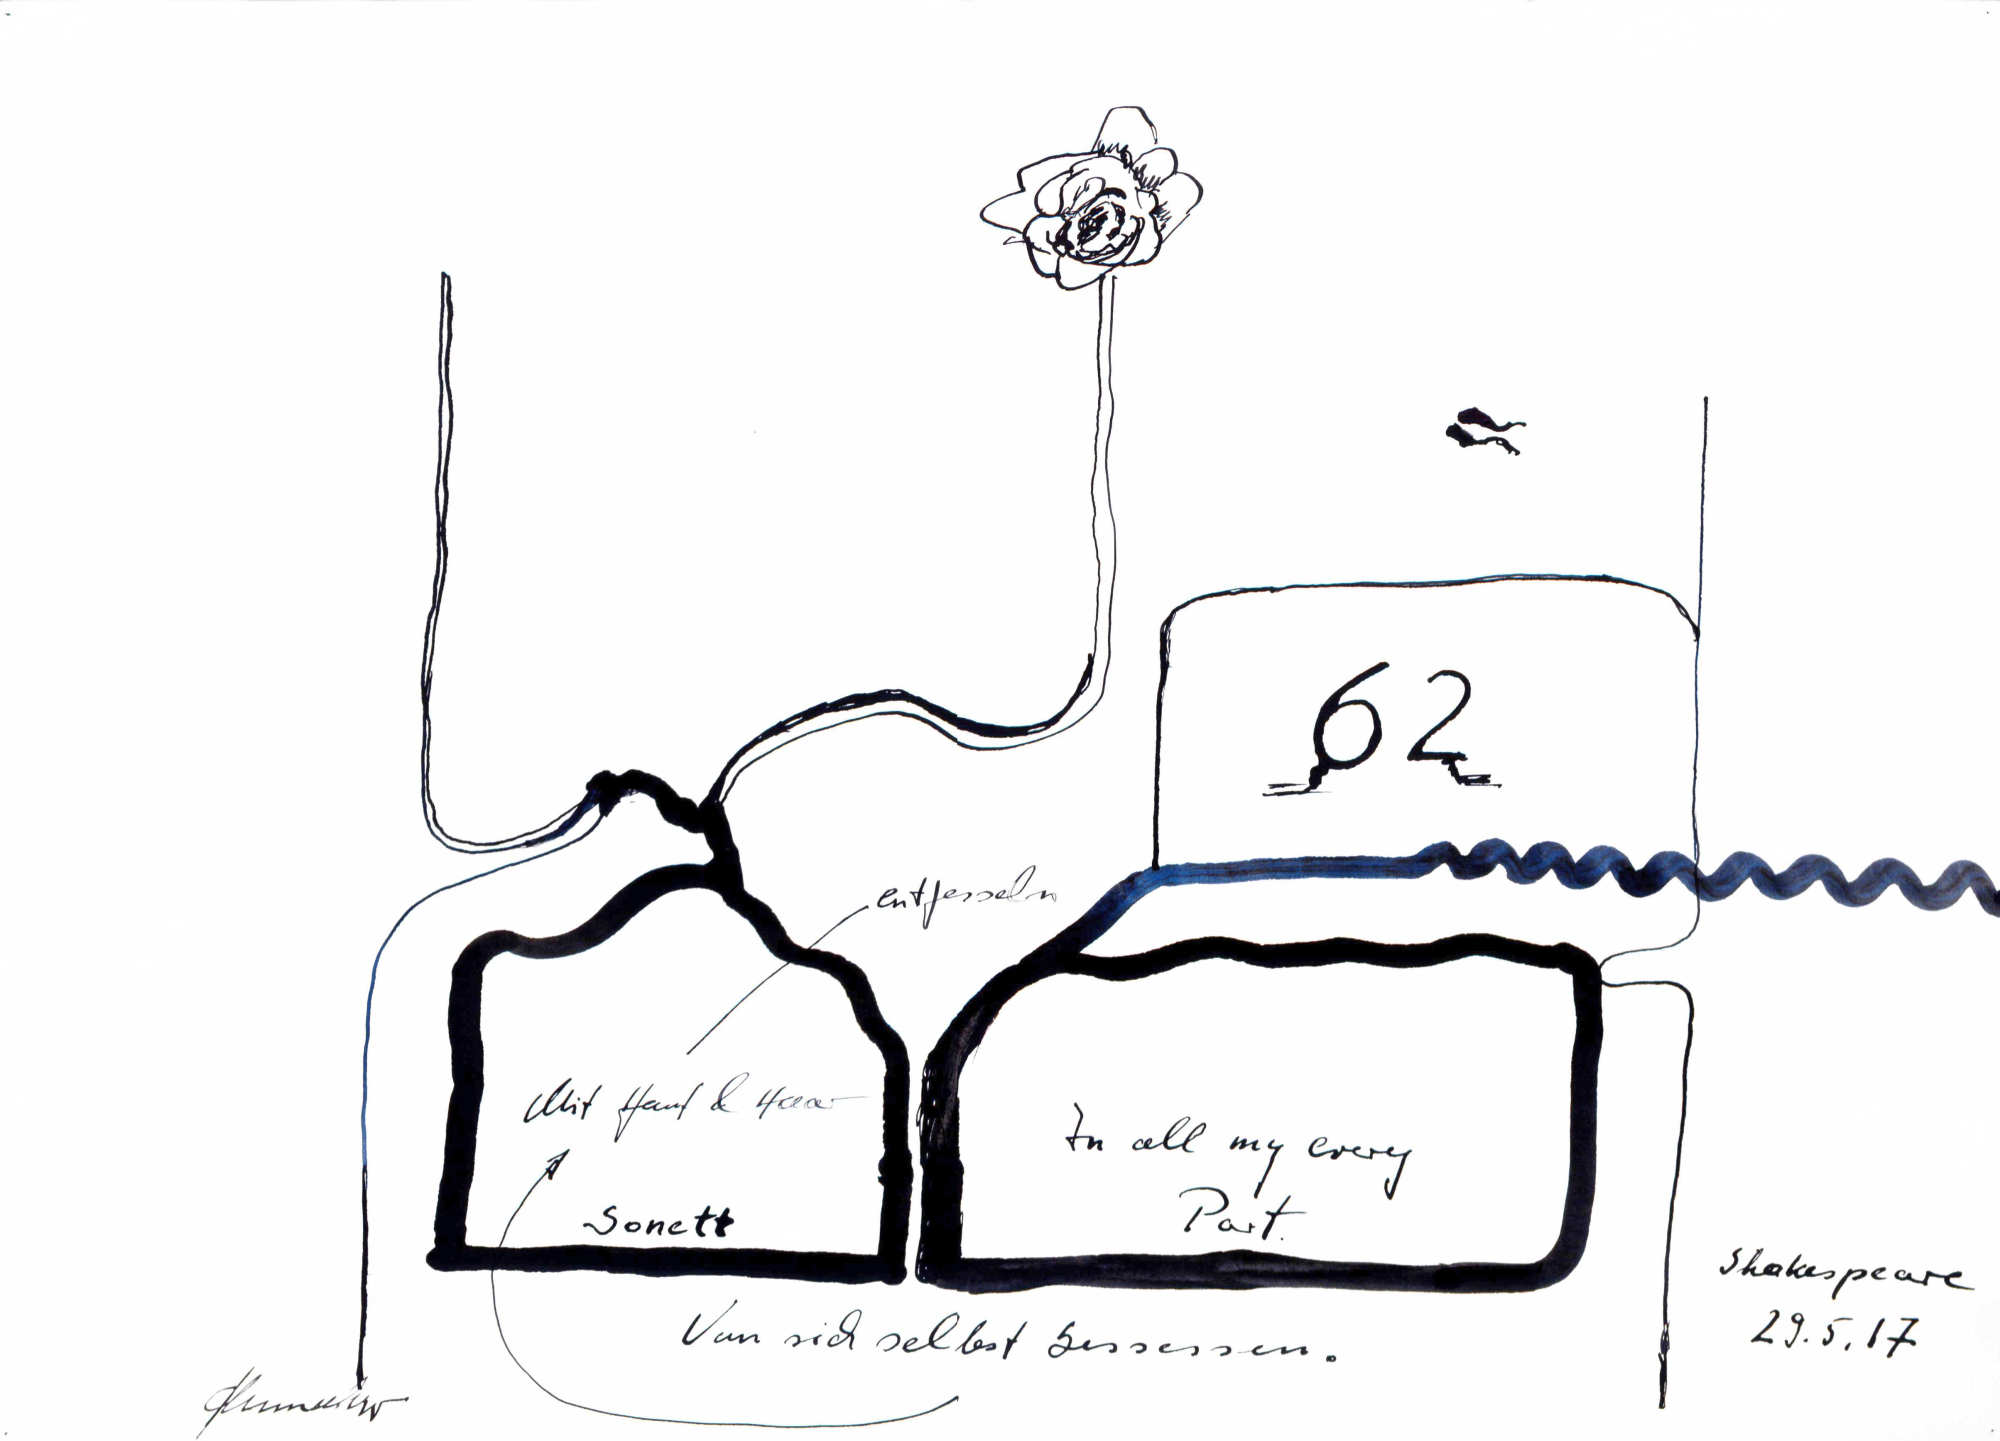 62
entfesseln
Mit Haut & Haar
In all my every
Part.
Sonett
Shakespeare
Von sich selbst bessessen.
29.5.17